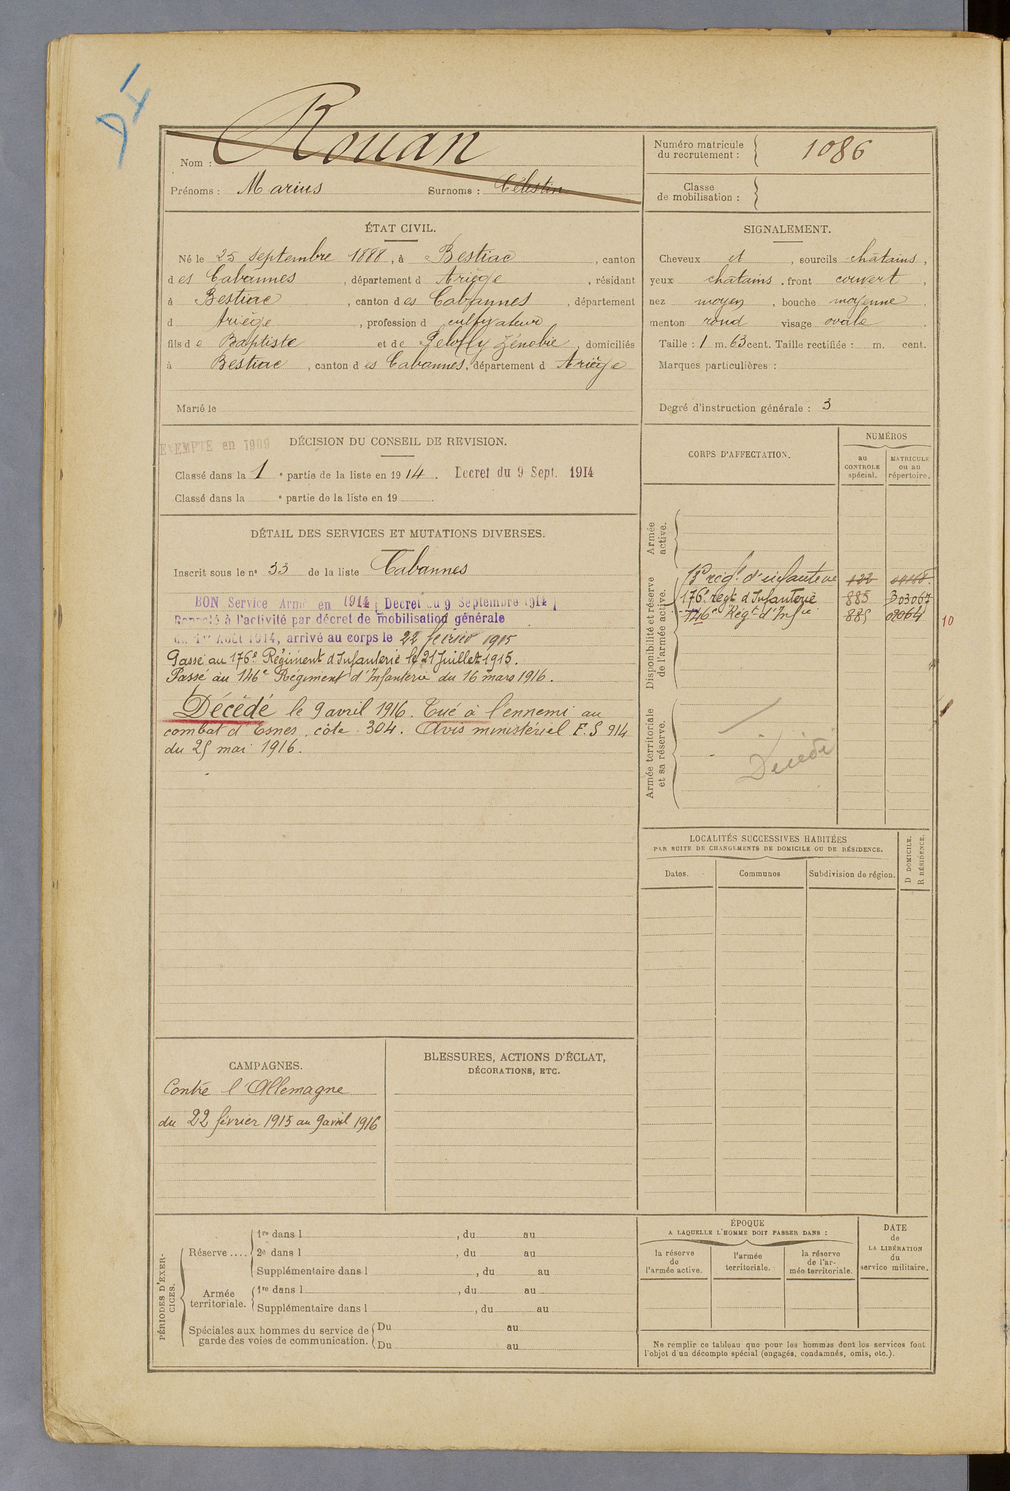 DI
Nom : Rouan
Prénoms : Marius Surnoms : Célestin
Numéro matricule du recrutement : 1086
Classe de mobilisation :
ÉTAT CIVIL.
Né le 25 septembre 1888, à Bestiac, canton
des Cabannes, département d Ariège, résidant
à Bestiac, canton des Cabannes, département
d Ariège, profession d cultivateur
fils de Baptiste et de Zénobie domiciliés
à Bestiac, canton des Cabannes, département d Ariège
Marié le
SIGNALEMENT.
Cheveux et, sourcils chatains,
yeux chatains, front couvert,
nez moyen, bouche moyenne
menton rond visage ovale
Taille : 1 m. 63 cent. Taille rectifiée : m. cent.
Marques particulières :
Degré d'instruction générale : 3
EXEMPTÉ en 1909
DÉCISION DU CONSEIL DE REVISION.
Classé dans la 1e partie de la liste en 1914. Decret du 9 Sept. 1914
Classé dans la e partie de la liste en 19
DÉTAIL DES SERVICES ET MUTATIONS DIVERSES.
Inscrit sous le n° 33 de la liste Cabannes
BON Service Armé en 1914 (Decret du 9 Septembre 1914)
Rappelé à l'activité par décret de mobilisation générale
du 1er Août 1914, arrivé au corps le 22 février 1915
Passé au 176e Régiment d'Infanterie le 21 Juillet 1915.
Passé au 146e Régiment d'Infanterie du 16 mars 1916.
Décédé le 9 avril 1916. Tué à l'ennemi au
combat d'Esnes, côte 304. Avis ministériel F.S 914
du 25 mai 1916.
CORPS D'AFFECTATION.
NUMÉROS
au CONTROLE spécial.
MATRICULE ou au répertoire.
Armée active.
Disponibilité et réserve de l'armée active.
régt d'infanterie
176e Regt d'Infanterie 885 303067
146e Régt d'Infie 885
10
Armée territoriale et sa réserve.
Décédé
LOCALITÉS SUCCESSIVES HABITÉES
PAR SUITE DE CHANGEMENTS DE DOMICILE OU DE RÉSIDENCE.
Dates.
Communes
Subdivision de région.
D DOMICILE.
R RÉSIDENCE.
CAMPAGNES.
Contre l'Allemagne
du 22 février 1915 au 9 avril 1916
BLESSURES, ACTIONS D'ÉCLAT,
DÉCORATIONS, ETC.
PÉRIODES D'EXERCICES.
Réserve....
1re dans l , du au
2e dans l , du au
Supplémentaire dans l , du au
Armée territoriale.
1re dans l , du au
Supplémentaire dans l , du au
Spéciales aux hommes du service de garde des voies de communication.
Du au
Du au
ÉPOQUE
A LAQUELLE L'HOMME DOIT PASSER DANS :
la réserve de l'armée active.
l'armée territoriale.
la réserve de l'armée territoriale.
DATE de LA LIBÉRATION du service militaire.
Ne remplir ce tableau que pour les hommes dont les services font
l'objet d'un décompte spécial (engagés, condamnés, omis, etc.).